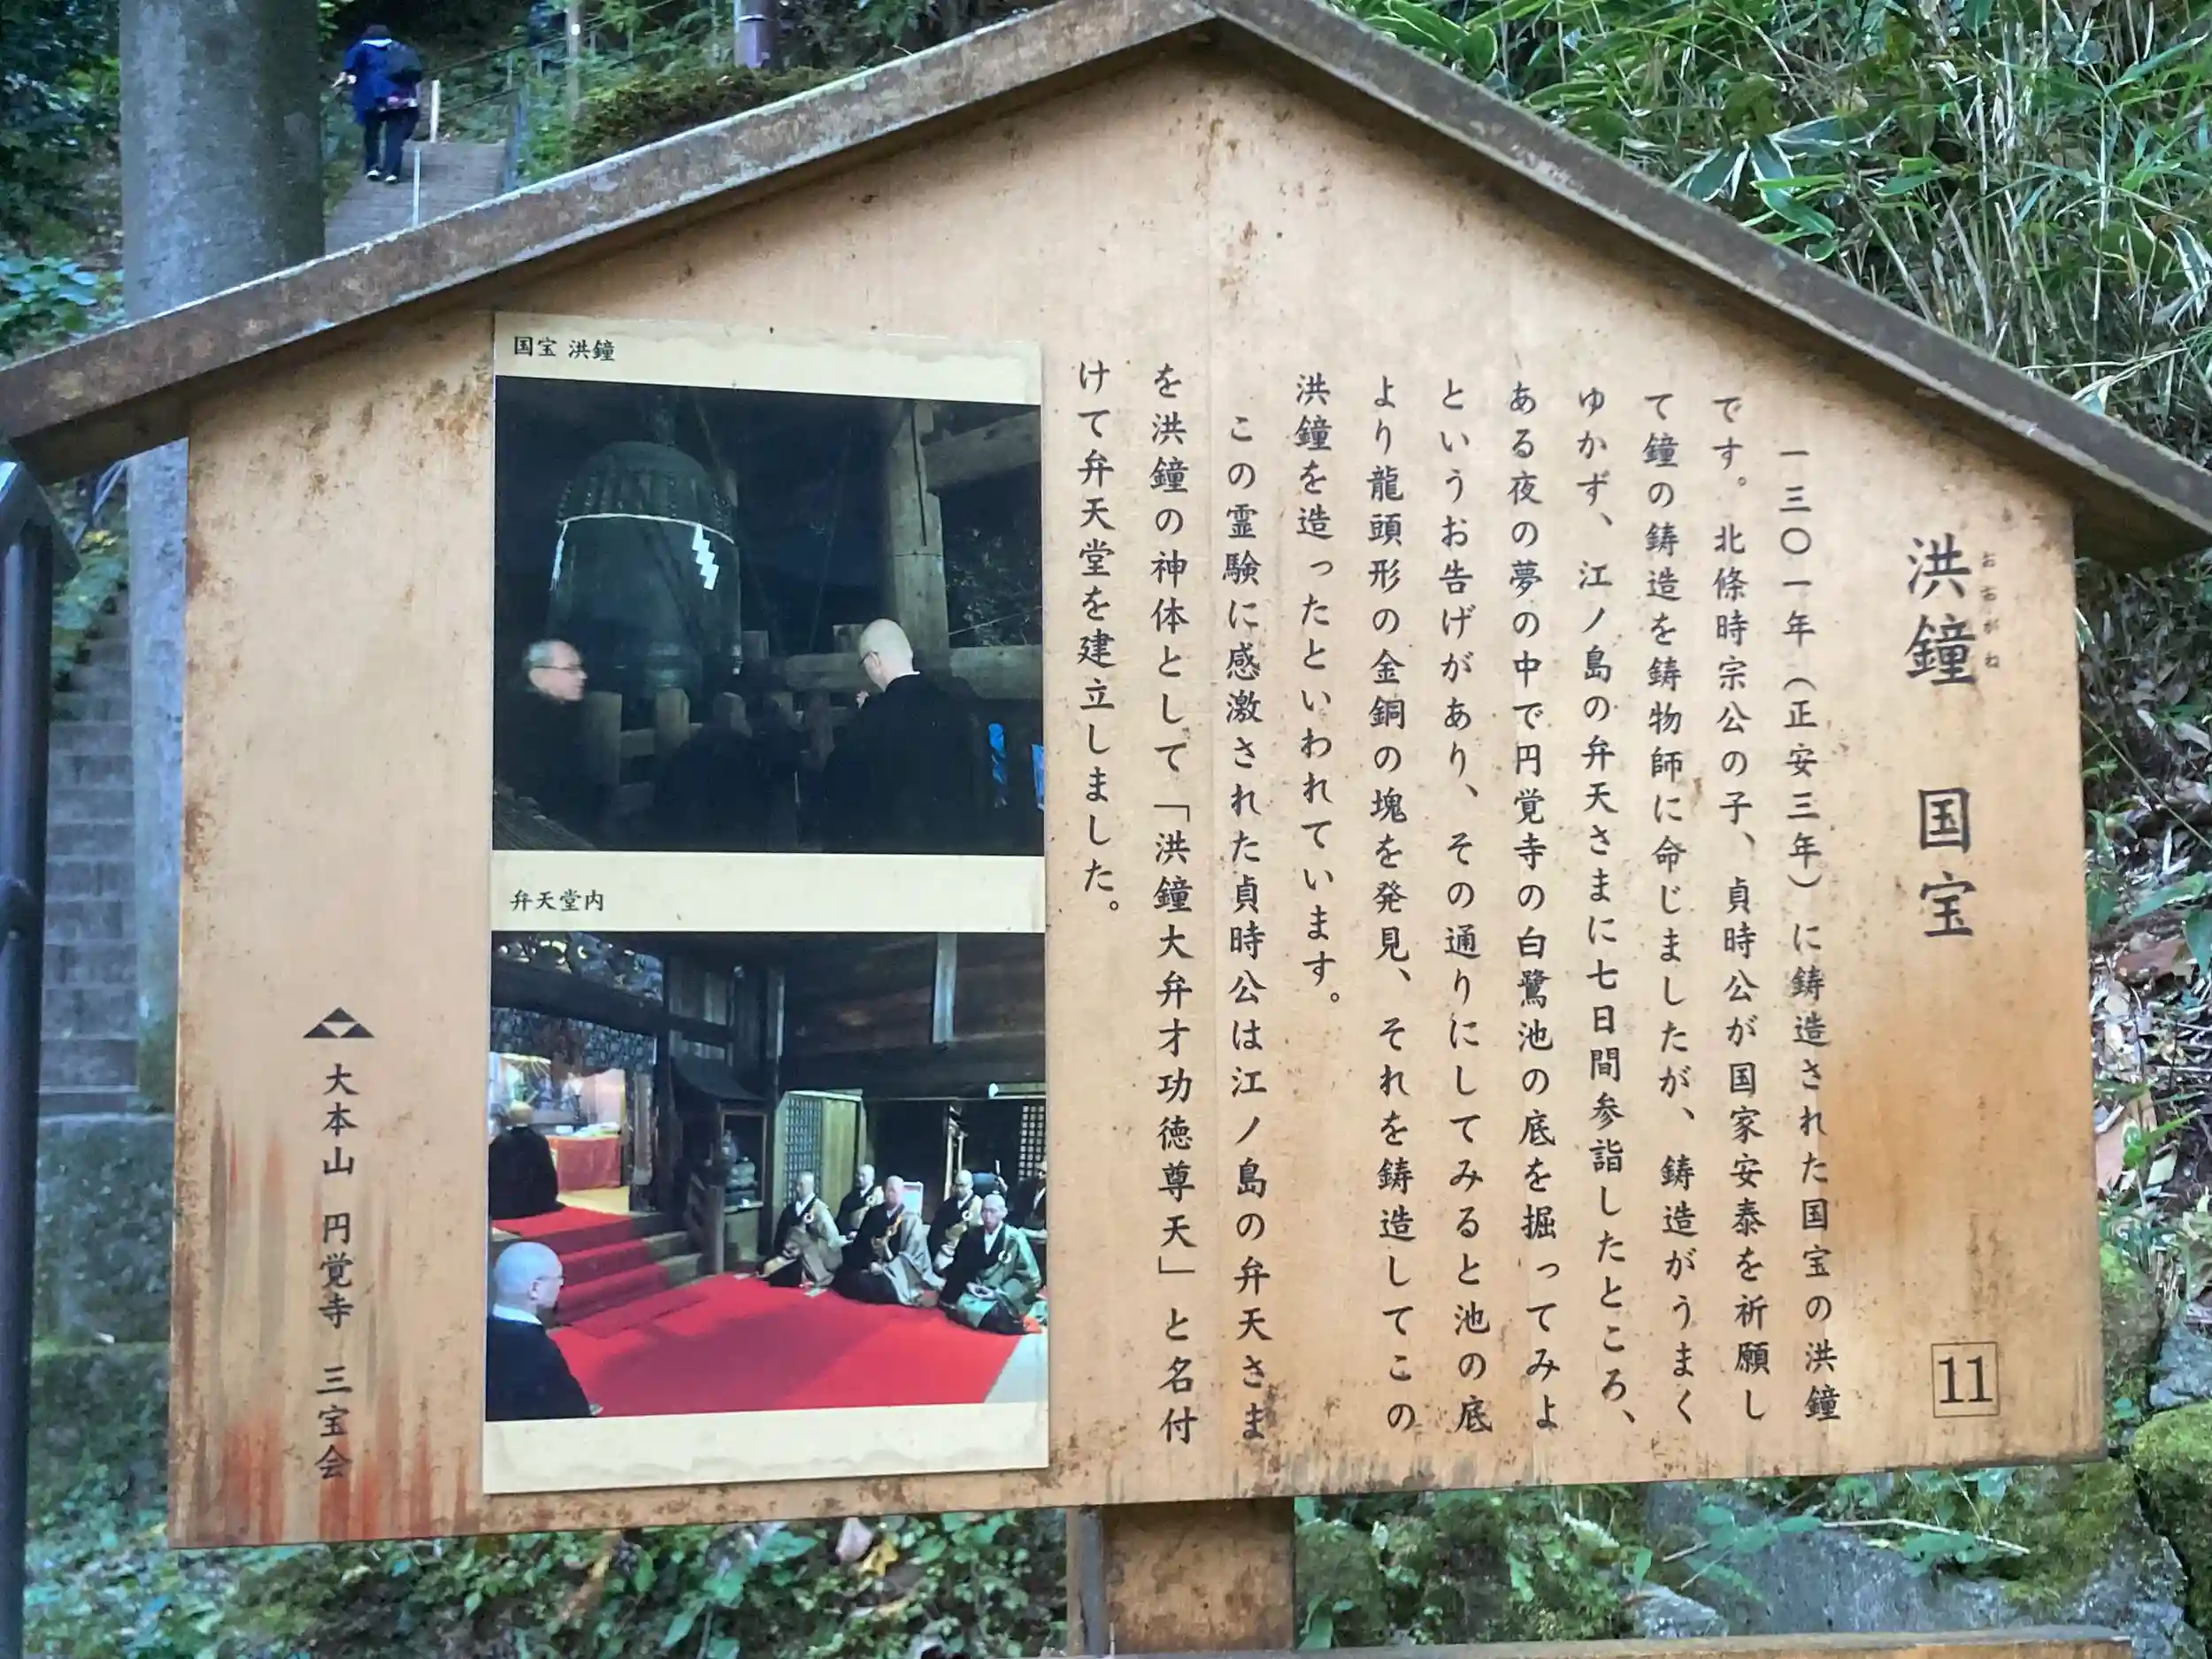 洪鐘 国宝
おおがね
11
一三〇一年（正安三年）に鋳造された国宝の洪鐘
です。北條時宗公の子、貞時公が国家安泰を祈願し
て鐘の鋳造を鋳物師に命じましたが、鋳造がうまく
ゆかず、江ノ島の弁天さまに七日間参詣したところ、
ある夜の夢の中で円覚寺の白鷺池の底を掘ってみよ
というお告げがあり、その通りにしてみると池の底
より龍頭形の金銅の塊を発見、それを鋳造してこの
洪鐘を造ったといわれています。
この霊験に感激された貞時公は江ノ島の弁天さま
を洪鐘の神体として「洪鐘大弁才功徳尊天」と名付
けて弁天堂を建立しました。
国宝 洪鐘
弁天堂内
大本山 円覚寺 三宝会